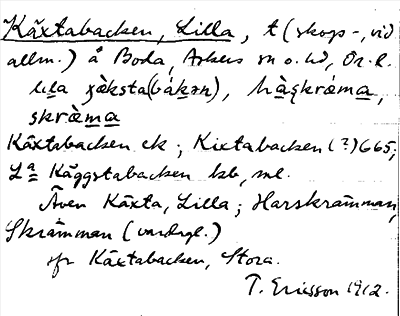 Käxtabacken, Lilla, t (skogs-, vid
allm.) å Boda, Askers sn o. hd, Ör. l.
lịla ɟæksta(bàkən), hàşkræma,
skræ̀ma
Käxtabacken ek; Kixtabacken (?) G65;
La Käggstabacken hb, ml.
Även Käxta, Lilla; Harskrämman,
Skrämman (vardagl.)
jfr Käxtabacken, Stora.
T. Ericsson 1912.